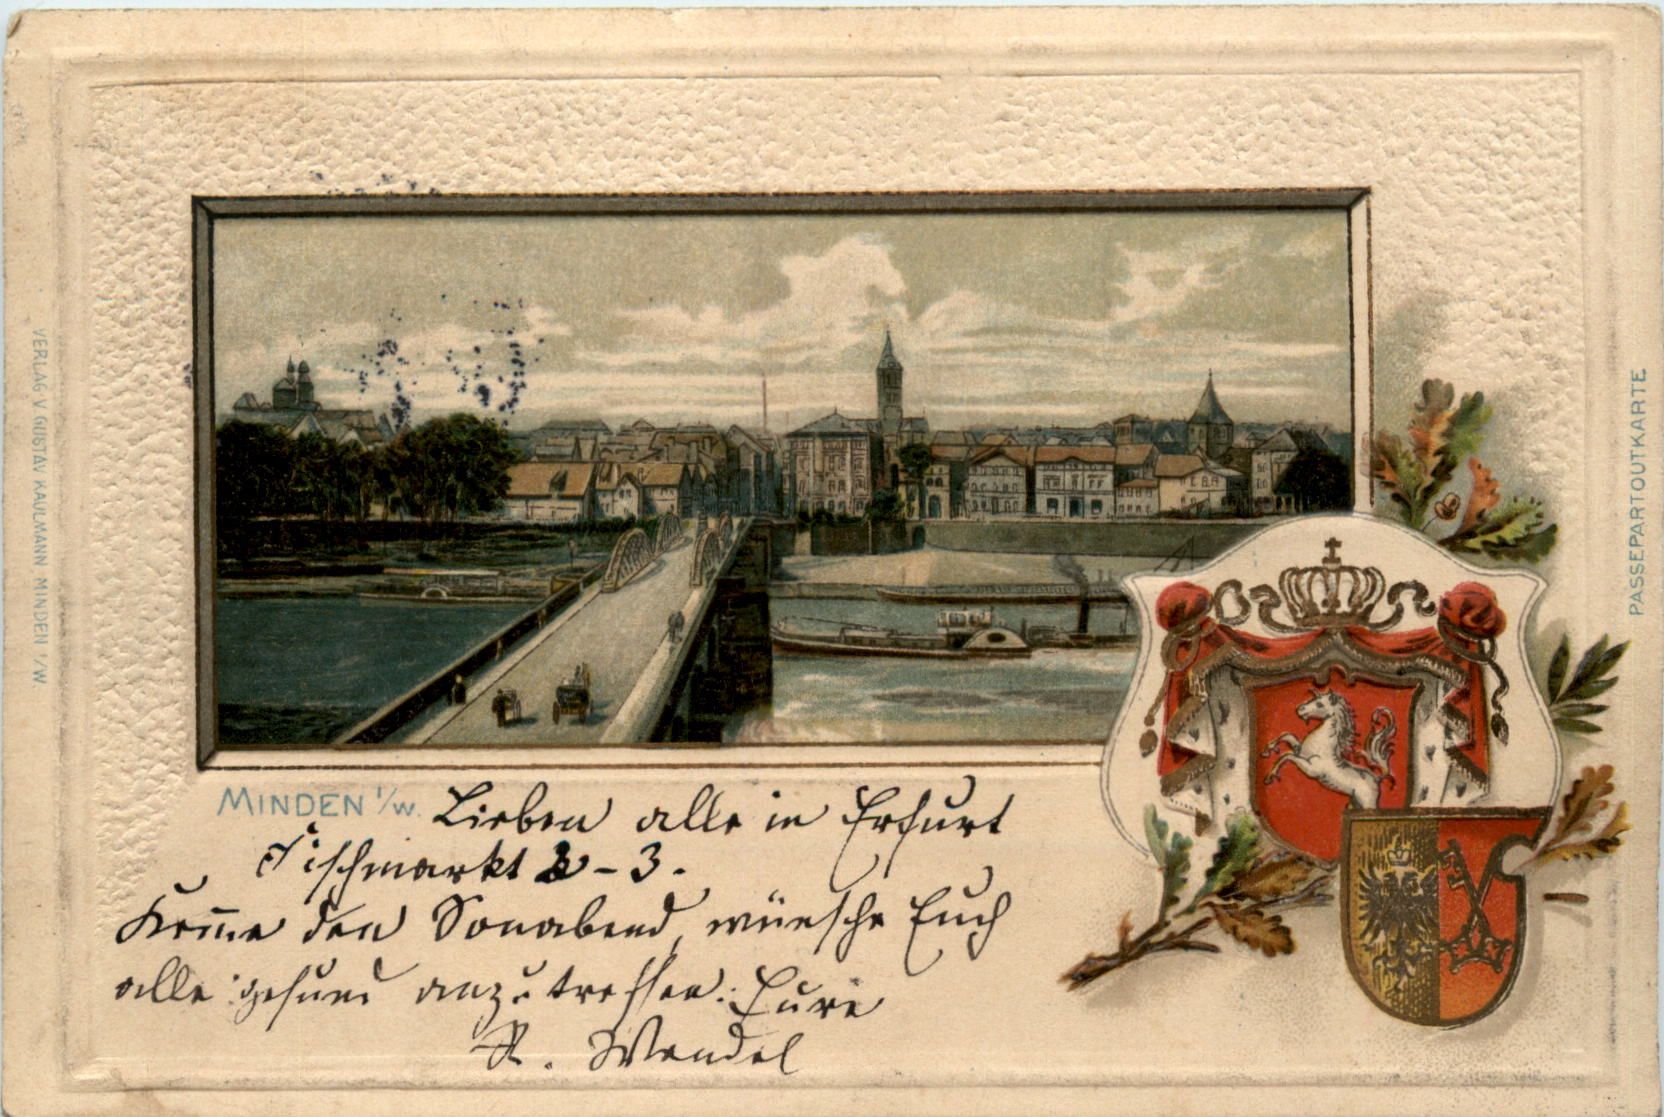 VERLAG V GUSTAV KAULMANN MINDEN I/W.
PASSEPARTOUTKARTE
MINDEN I/W.
Lieben alle in Erfurt
Fischmarkt 2-3.
Kom̄e den Sonabend, wünsche Euch
alle gesund anzutreffen. Eure
R. Wendel